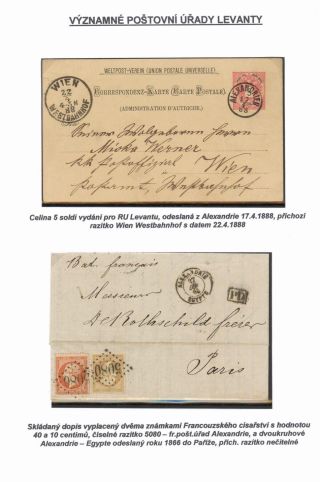 VÝZNAMNÉ POŠTOVNÍ ÚŘADY LEVANTY
WELTPOST-VEREIN (UNION POSTALE UNIVERSELLE)
CORRESPONDENZ-KARTE (CARTE POSTALE)
(ADMINISTRATION D'AUTRICHE)
WIEN
WESTBAHNHOF
ALEXANDRIEN
Wien
Westbahnhof
Celina 5 soldi vydání pro RU Levantu, odeslaná z Alexandrie 17.4.1888, příchozí
razítko Wien Westbahnhof s datem 22.4.1888
Bat. français
ALEXANDRIE
EGYPTE
PD
Messieurs
De Rothschild frères
Paris
5080
5080
Skládaný dopis vyplacený dvěma známkami Francouzského císařství s hodnotou
40 a 10 centimů, číselné razítko 5080 – fr.pošt.úřad Alexandrie, a dvoukruhové
Alexandrie – Egypte odeslaný roku 1866 do Paříže, přích. razítko nečitelné